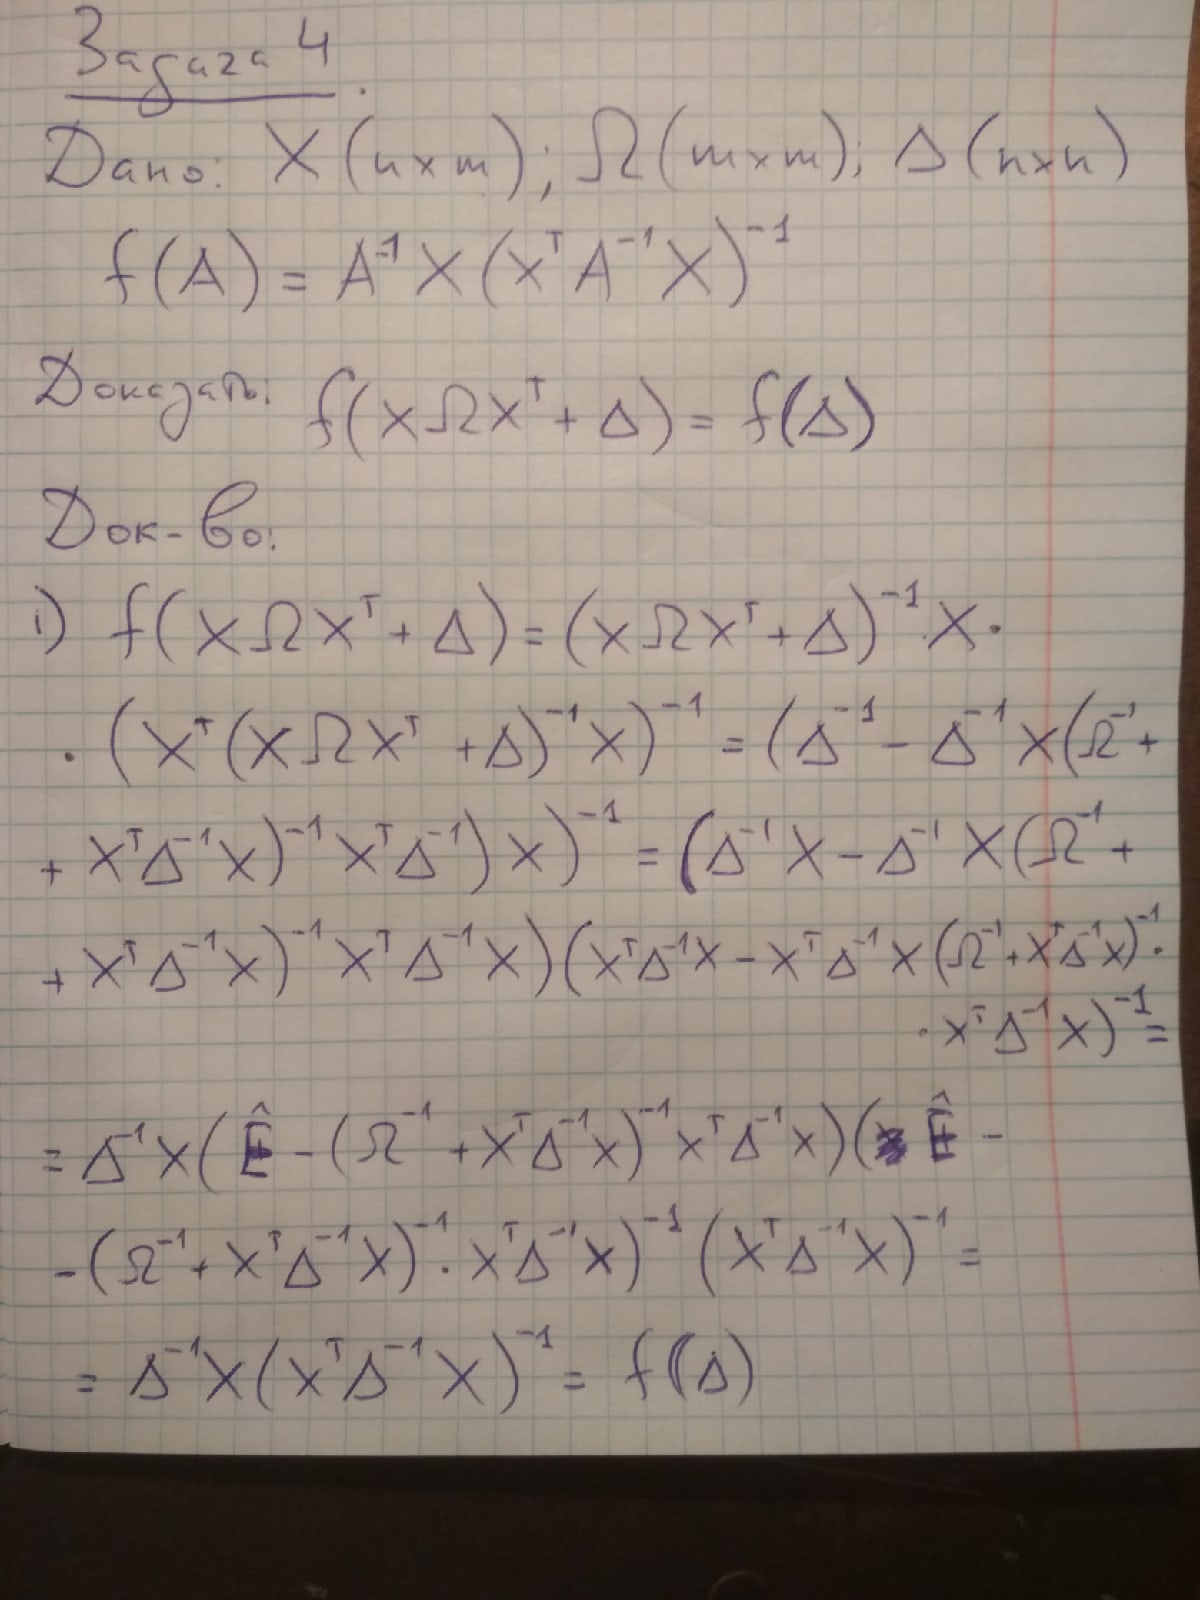 Задача 4.
Дано: X (n×m); Ω (m×m); Δ (n×n)
f(A) = A⁻¹ X (X^T A⁻¹ X)⁻¹
Доказать: f(XΩX^T + Δ) = f(Δ)
Док-во:
i) f(XΩX^T + Δ) = (XΩX^T + Δ)⁻¹ X ·
· (X^T (XΩX^T + Δ)⁻¹ X)⁻¹ = (Δ⁻¹ - Δ⁻¹ X (Ω⁻¹ +
+ X^T Δ⁻¹ X)⁻¹ X^T Δ⁻¹) X)⁻¹ = (Δ⁻¹ X - Δ⁻¹ X (Ω⁻¹ +
+ X^T Δ⁻¹ X)⁻¹ X^T Δ⁻¹ X) (X^T Δ⁻¹ X - X^T Δ⁻¹ X (Ω⁻¹ + X^T Δ⁻¹ X)⁻¹ ·
· X^T Δ⁻¹ X)⁻¹ =
= Δ⁻¹ X (Ê - (Ω⁻¹ + X^T Δ⁻¹ X)⁻¹ X^T Δ⁻¹ X) (Ê -
- (Ω⁻¹ + X^T Δ⁻¹ X)⁻¹ · X^T Δ⁻¹ X)⁻¹ (X^T Δ⁻¹ X)⁻¹ =
= Δ⁻¹ X (X^T Δ⁻¹ X)⁻¹ = f(Δ)